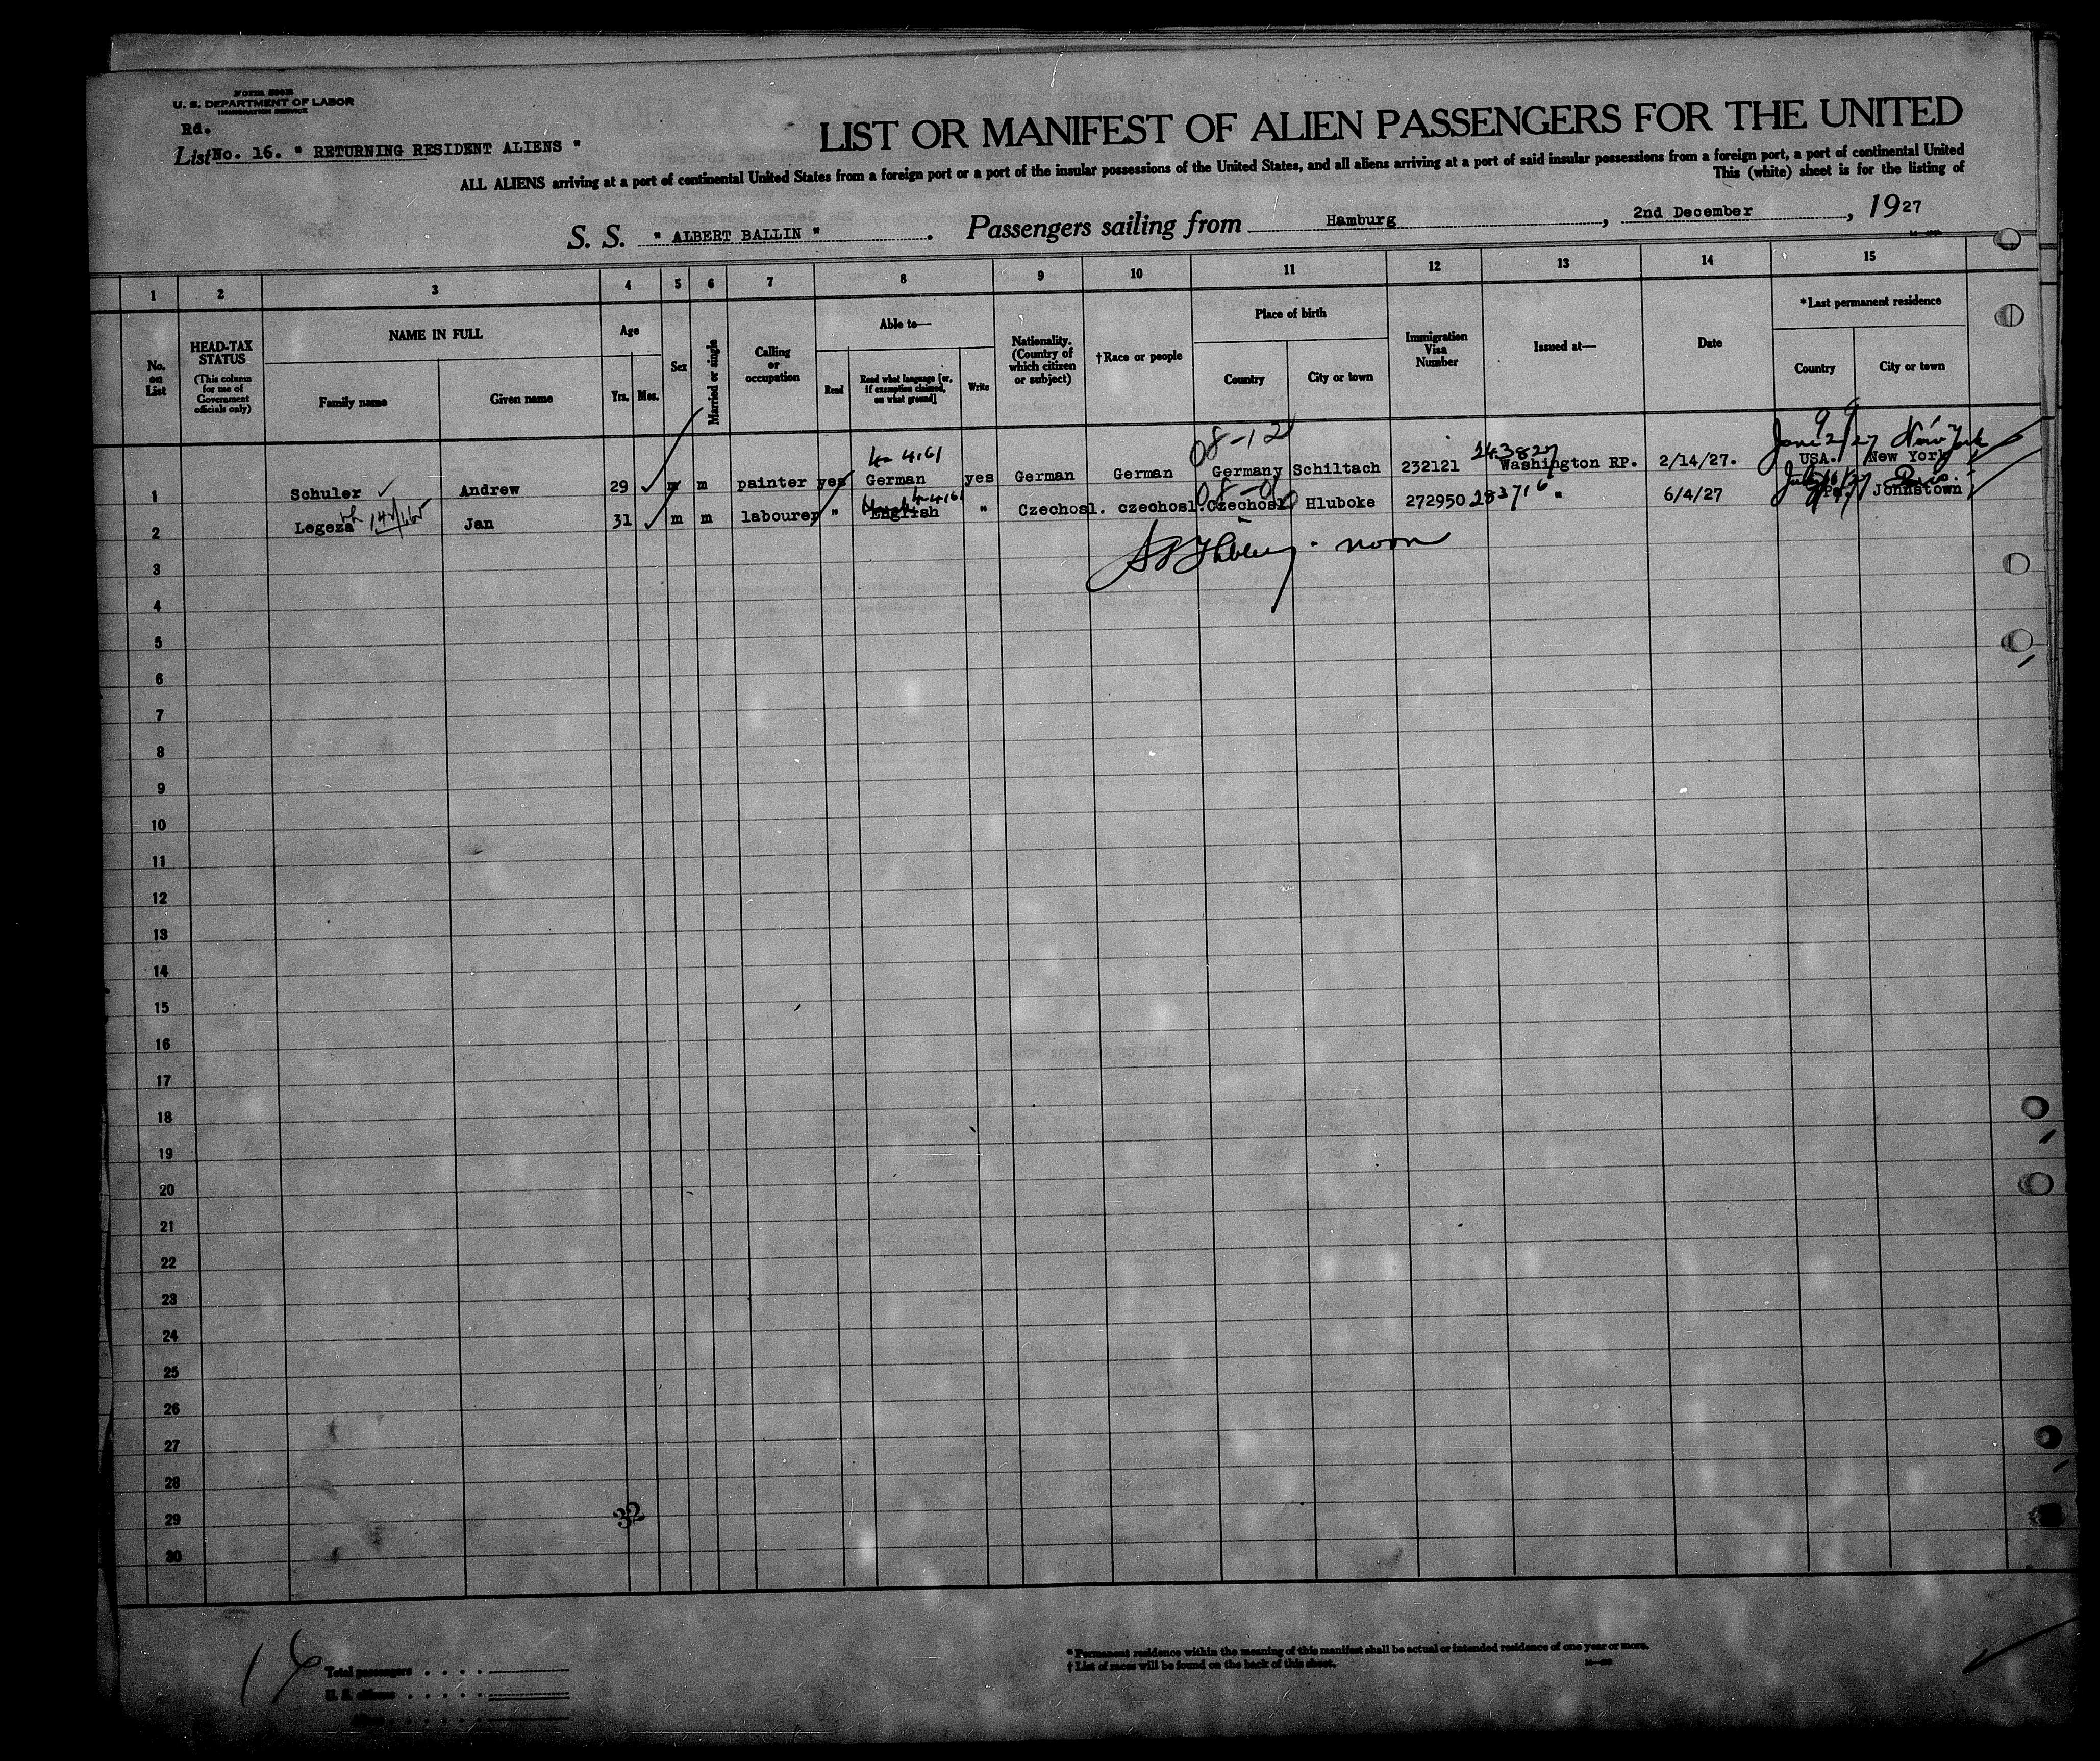 U. S. DEPARTMENT OF LABOR
IMMIGRATION SERVICE
Rd.
List No. 16. " RETURNING RESIDENT ALIENS "
LIST OR MANIFEST OF ALIEN PASSENGERS FOR THE UNITED
ALL ALIENS arriving at a port of continental United States from a foreign port or a port of the insular possessions of the United States, and all aliens arriving at a port of said insular possessions from a foreign port, a port of continental United
This (white) sheet is for the listing of
S. S. " ALBERT BALLIN " . Passengers sailing from Hamburg , 2nd December , 1927
1 2 3 4 5 6 7 8 9 10 11 12 13 14 15
No. on List
HEAD-TAX STATUS
(This column for use of Government officials only)
NAME IN FULL
Family name
Given name
Age
Yrs. Mos.
Sex
Married or single
Calling or occupation
Able to—
Read
Read what language [or, if exemption claimed, on what ground]
Write
Nationality. (Country of which citizen or subject)
†Race or people
Place of birth
Country
City or town
Immigration Visa Number
Issued at—
Date
*Last permanent residence
Country
City or town
08-121
4-4161
243827
June 2/27 New York
1 Schuler Andrew 29 m m painter yes German yes German German Germany Schiltach 232121 Washington RP. 2/14/27. USA. New York
2 Legeza Jan 31 m m labourer " English " Czechosl. czechosl. Czechosl. Hluboke 272950 283716 " 6/4/27 Johnstown
noon
3
4
5
6
7
8
9
10
11
12
13
14
15
16
17
18
19
20
21
22
23
24
25
26
27
28
29
30
32
16
Total passengers
U. S. citizens
* Permanent residence within the meaning of this manifest shall be actual or intended residence of one year or more.
† List of races will be found on the back of this sheet.